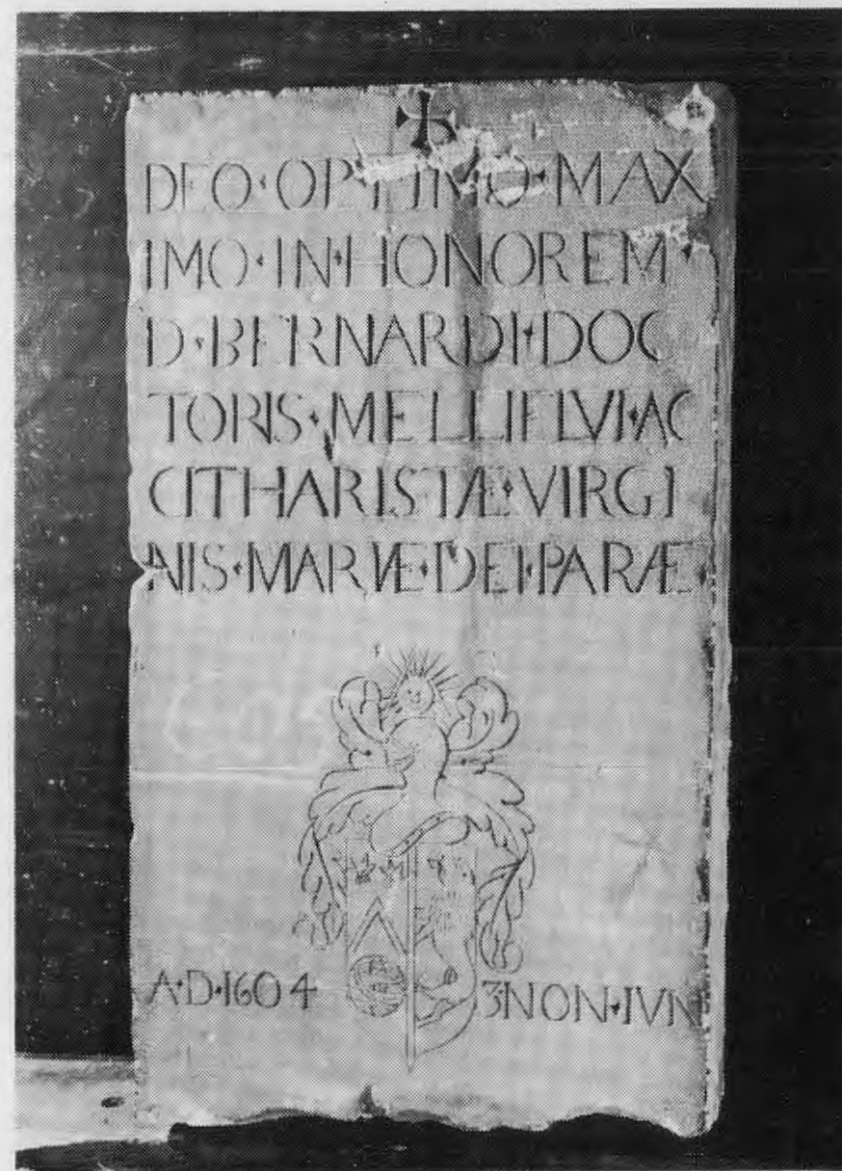 DEO·OPTIMO·MAX
IMO·IN·HONOREM·
D·BERNARDI·DOC
TORIS·MELLIFLVI·AC
CITHARISTÆ·VIRGI
NIS·MARIÆ·DEI·PARÆ·
A·D·1604 3·NON·IVN